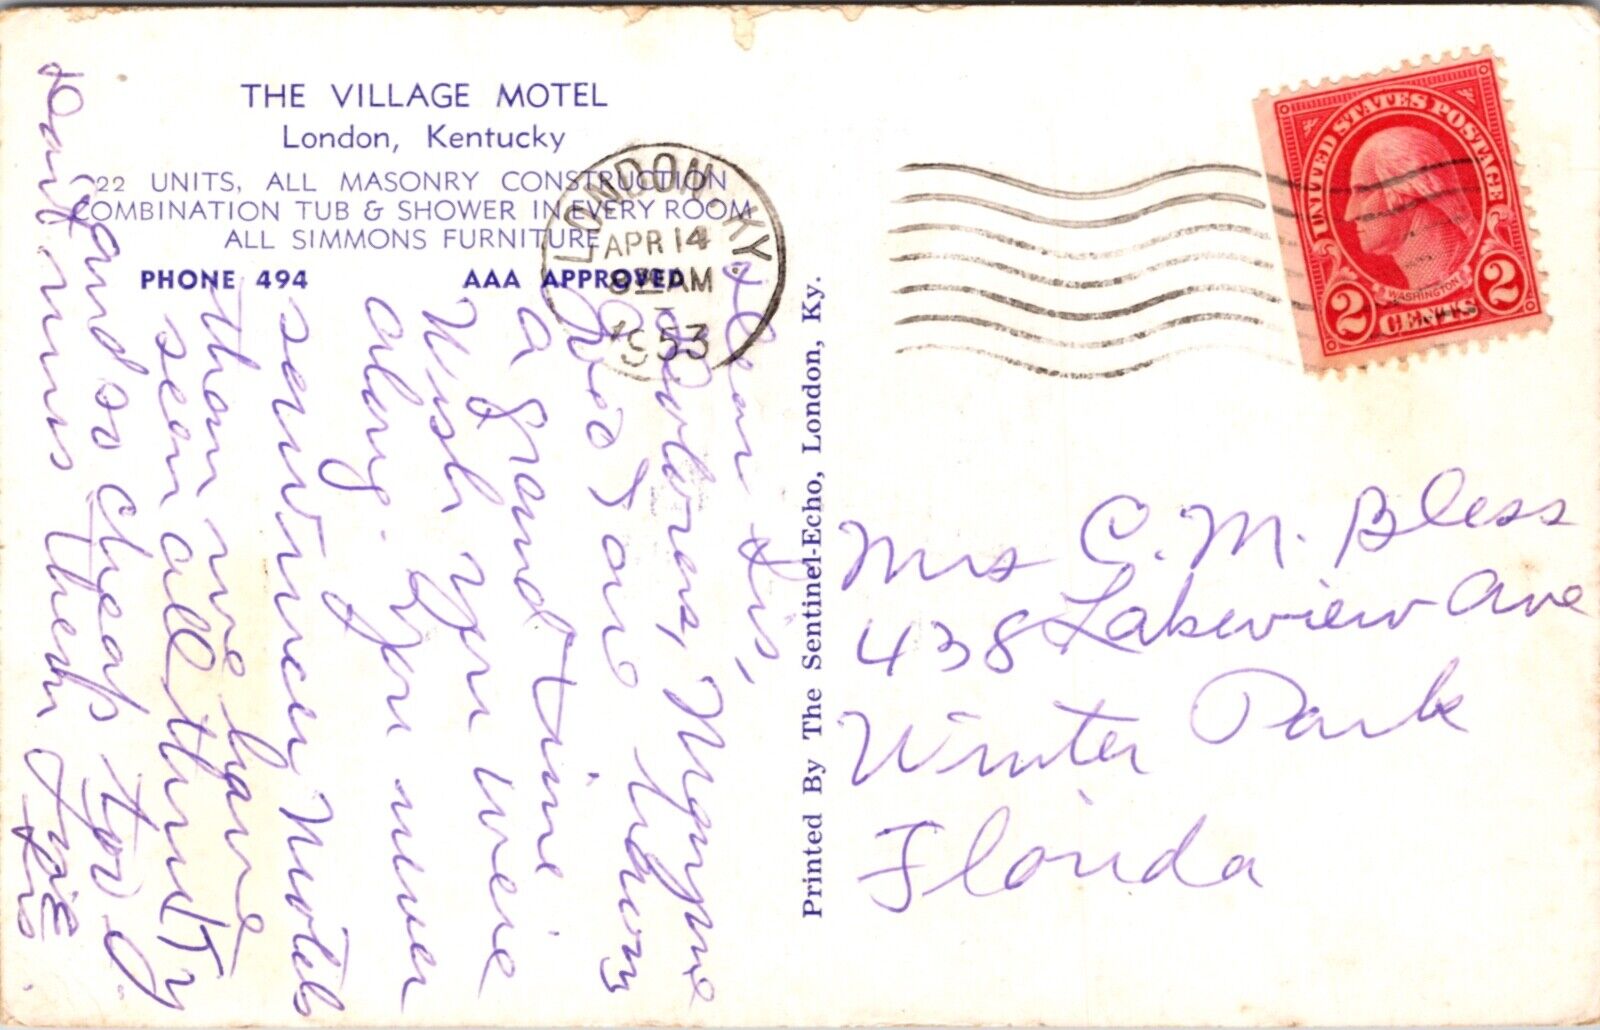 THE VILLAGE MOTEL
London, Kentucky
22 UNITS, ALL MASONRY CONSTRUCTION
COMBINATION TUB & SHOWER IN EVERY ROOM
ALL SIMMONS FURNITURE
PHONE 494 AAA APPROVED
LONDON, KY.
APR 14
8 AM
1953
UNITED STATES POSTAGE
WASHINGTON
2 CENTS 2
Printed By The Sentinel-Echo, London, Ky.
Mrs C. M. Bless
438 Lakeview Ave
Winter Park
Florida
Dear Sis,
Dolores, Mayme
and are having
a grand time
Wish you were
along. You never
saw nicer motels
than we have
seen all thru Ty
and so cheap too
runs them